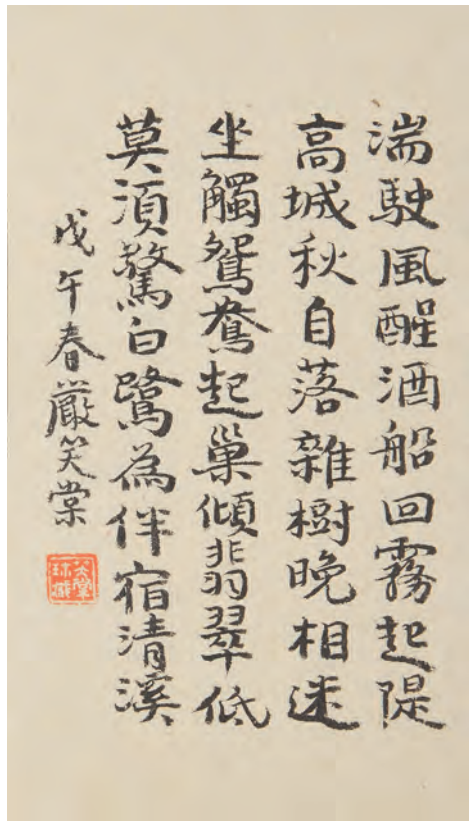 湍駛風醒酒船回霧起隄
高城秋自落雜樹晚相迷
坐觸鴛鴦起巢傾翡翠低
莫須驚白鷺為伴宿清溪
戊午春嚴笑棠